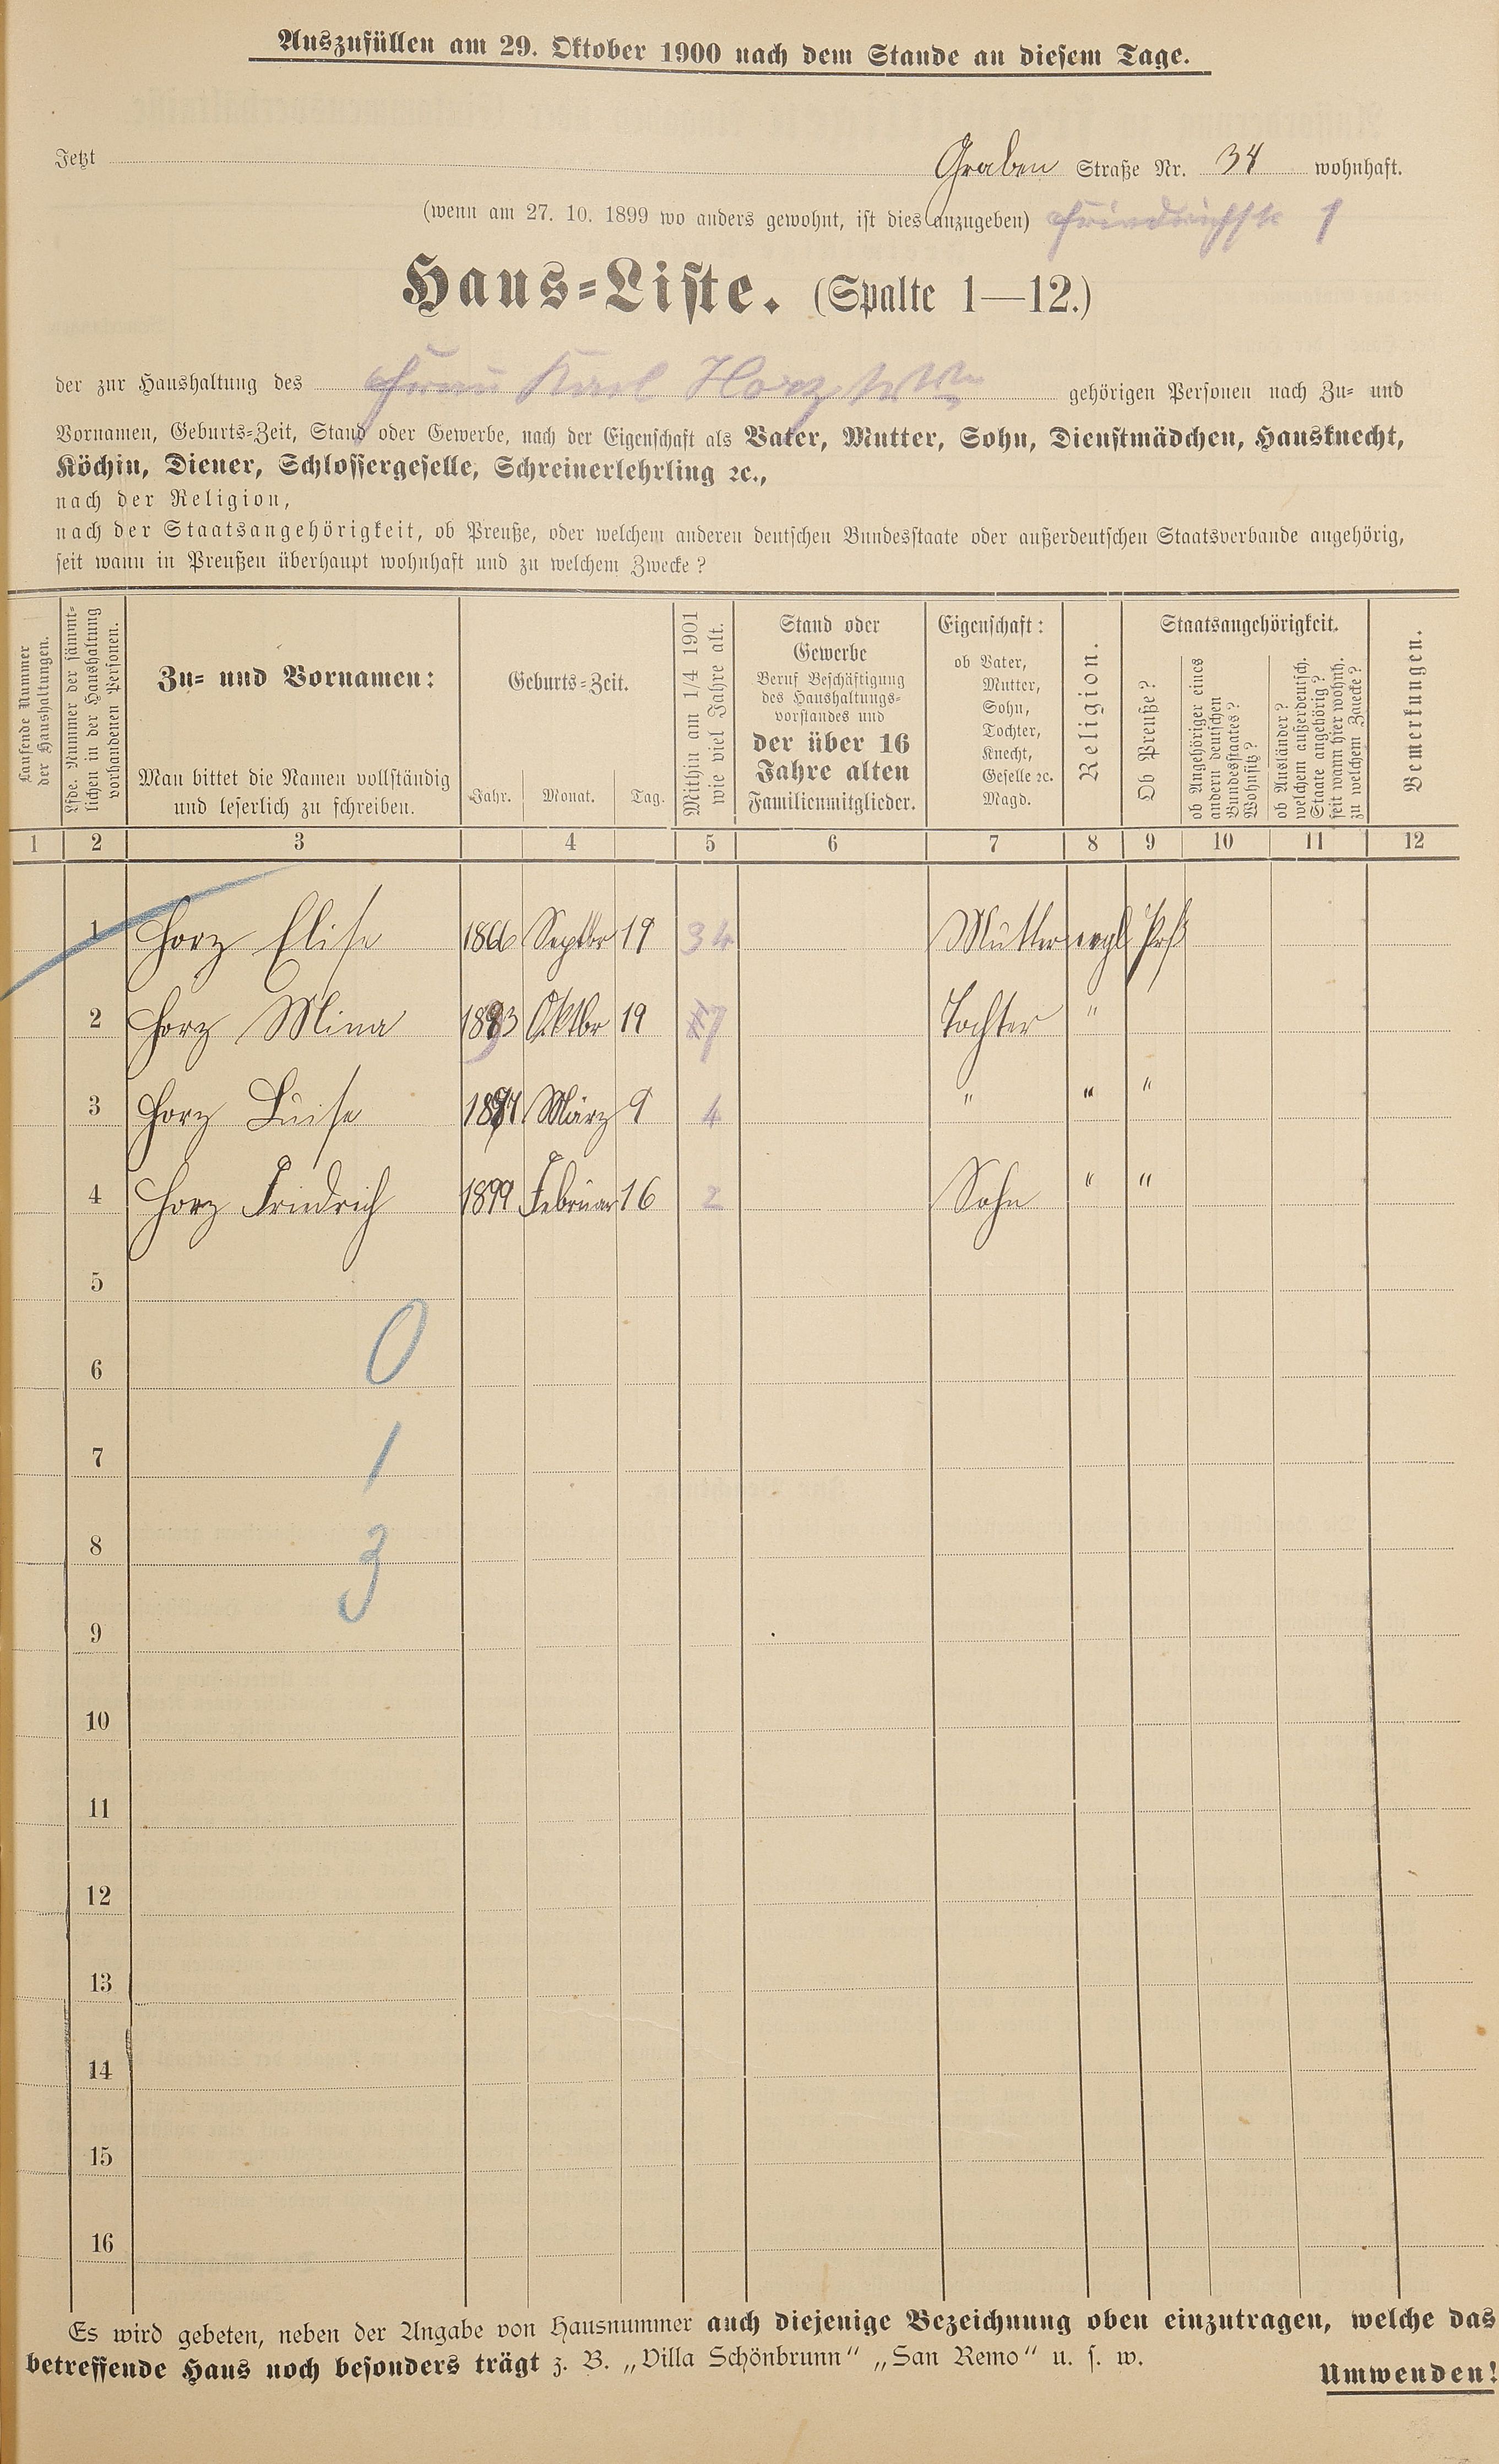 Auszufüllen am 29. Oktober 1900 nach dem Stande an diesem Tage.
Jetzt Graben Straße Nr. 34 wohnhaft.
(wenn am 27. 10. 1899 wo anders gewohnt, ist dies anzugeben) Friedrichstr 1
Haus-Liste. (Spalte 1—12.)
der zur Haushaltung des Frau Karl Horz Wwe gehörigen Personen nach Zu- und
Vornamen, Geburts-Zeit, Stand oder Gewerbe, nach der Eigenschaft als Vater, Mutter, Sohn, Dienstmädchen, Hausknecht,
Köchin, Diener, Schlossergeselle, Schreinerlehrling ꝛc.,
nach der Religion,
nach der Staatsangehörigkeit, ob Preuße, oder welchem anderen deutschen Bundesstaate oder außerdeutschen Staatsverbande angehörig,
seit wann in Preußen überhaupt wohnhaft und zu welchem Zwecke?
Laufende Nummer
der Haushaltungen.
Lfde. Nummer der sämmt-
lichen in der Haushaltung
vorhandenen Personen.
Zu- und Vornamen:
Man bittet die Namen vollständig
und leserlich zu schreiben.
Geburts-Zeit.
Jahr. Monat. Tag.
Mithin am 1/4 1901
wie viel Jahre alt.
Stand oder
Gewerbe
Beruf Beschäftigung
des Haushaltungs-
vorstandes und
der über 16
Jahre alten
Familienmitglieder.
Eigenschaft:
ob Vater,
Mutter,
Sohn,
Tochter,
Knecht,
Geselle ꝛc.
Magd.
Religion.
Staatsangehörigkeit.
Ob Preuße?
ob Angehöriger eines
andern deutschen
Bundesstaates?
Wohnsitz?
ob Ausländer?
welchem außerdeutsch.
Staate angehörig?
seit wann hier wohnh.
zu welchem Zwecke?
Bemerkungen.
1 2 3 4 5 6 7 8 9 10 11 12
1 Horz Elise 1866 Septbr 19 34 Mutter evgl Prß
2 Horz Mina 1893 Oktbr 19 7 Tochter "
3 Horz Luise 1897 März 9 4 " " "
4 Horz Friedrich 1899 Februar 16 2 Sohn " "
5
0
6
7 1
8 3
9
10
11
12
13
14
15
16
Es wird gebeten, neben der Angabe von Hausnummer auch diejenige Bezeichnung oben einzutragen, welche das
betreffende Haus noch besonders trägt z. B. „Villa Schönbrunn“ „San Remo“ u. s. w.
Umwenden!